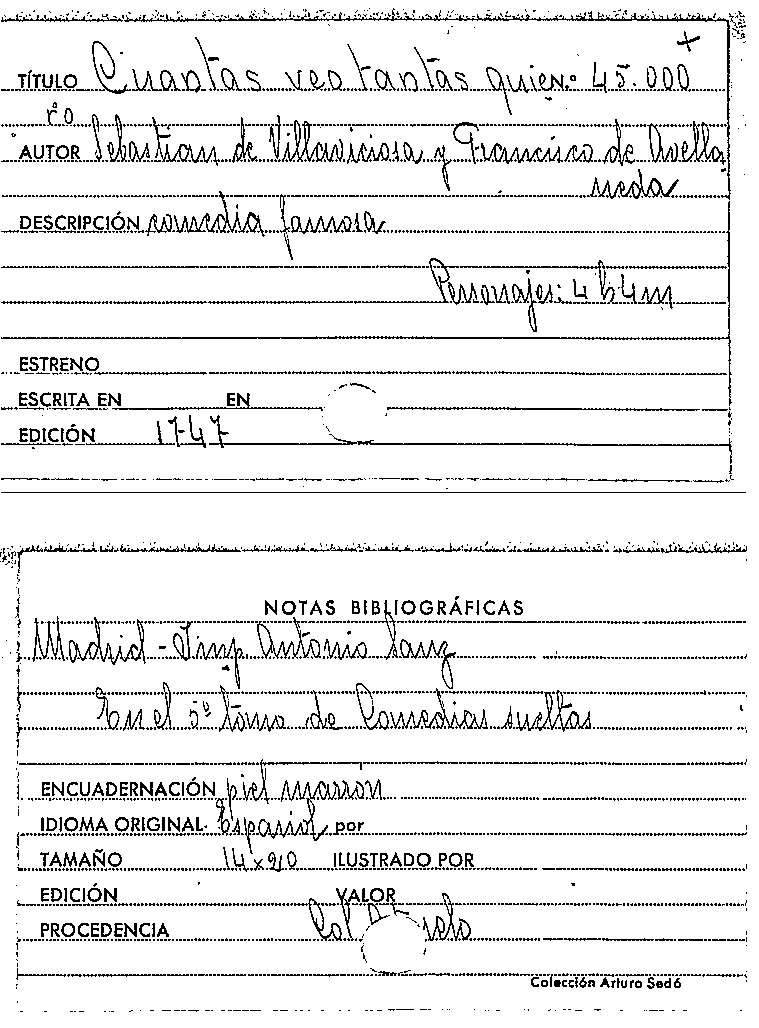 +
TÍTULO Cuantas veo tantas quiero 45.000
ro
AUTOR Sebastian de Villaviciosa y Francisco de Avella
neda
DESCRIPCIÓN comedia famosa
Personajes: 4 h 4 m
ESTRENO
ESCRITA EN EN
EDICIÓN 1747
NOTAS BIBLIOGRÁFICAS
Madrid - Imp. Antonio Sanz
En el 5º tomo de Comedias sueltas
ENCUADERNACIÓN piel marron
IDIOMA ORIGINAL Español por
TAMAÑO 14x20 ILUSTRADO POR
EDICIÓN VALOR
PROCEDENCIA Col
Colección Arturo Sedó